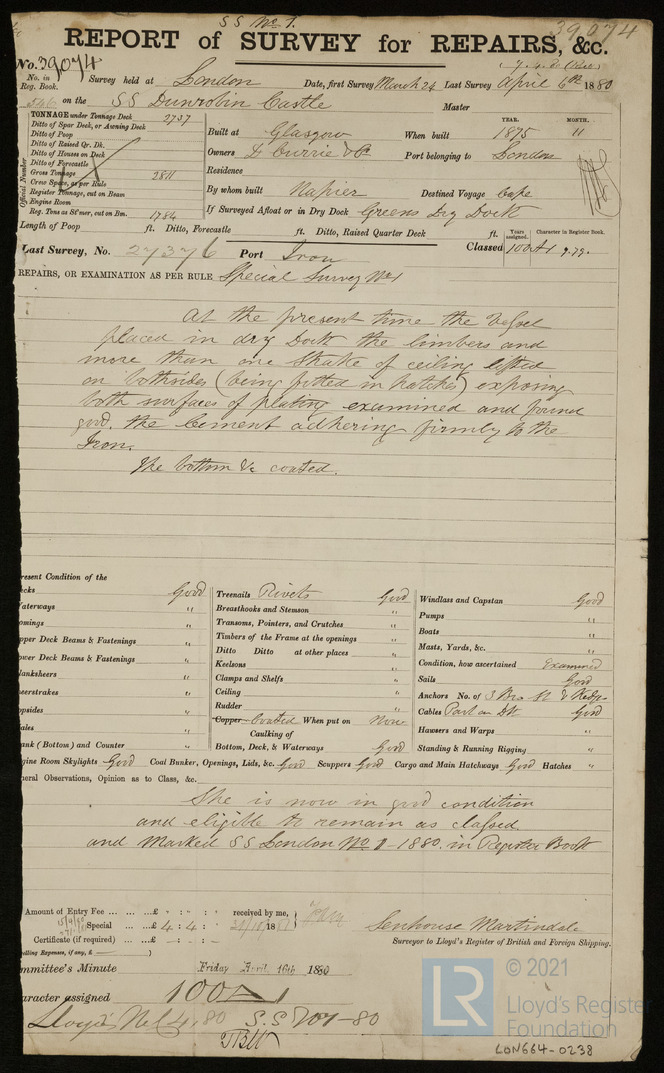 S S No 1.
39074
REPORT of SURVEY for REPAIRS, &c.
No. 39074
No. in Reg. Book. Survey held at London Date, first Survey March 24 Last Survey April 6th 1880
546 on the SS Dunrobin Castle Master
TONNAGE under Tonnage Deck 2737
Ditto of Spar Deck, or Awning Deck
Ditto of Poop
Ditto of Raised Qr. Dk.
Ditto of Houses on Deck
Ditto of Forecastle
Gross Tonnage 2811
Crew Space, as per Rule
Register Tonnage, cut on Beam
Engine Room
Reg. Tons as St'mer, cut on Bm. 1784
Official Number
YEAR. MONTH.
Built at Glasgow When built 1875 11
Owners D Currie & Co Port belonging to London
Residence
By whom built Napier Destined Voyage Cape
If Surveyed Afloat or in Dry Dock Greens Dry Dock
Length of Poop ft. Ditto, Forecastle ft. Ditto, Raised Quarter Deck ft.
Years assigned. Character in Register Book.
Last Survey, No. 27376 Port Iron Classed 100A1 9.79.
REPAIRS, OR EXAMINATION AS PER RULE Special Survey No 1
At the present time the Vessel
placed in dry Dock the limbers and
more than one Strake of ceiling lifted
on both sides (being fitted in hatches) exposing
both surfaces of plating examined and found
good. the Cement adhering firmly to the
Iron.
The bottom &c coated.
resent Condition of the
ecks Good
aterways "
omings "
pper Deck Beams & Fastenings "
ower Deck Beams & Fastenings "
lanksheers "
heerstrakes "
opsides "
ales "
ank (Bottom) and Counter "
Treenails Rivets Good
Breasthooks and Stemson "
Transoms, Pointers, and Crutches "
Timbers of the Frame at the openings "
Ditto Ditto at other places "
Keelsons "
Clamps and Shelfs "
Ceiling "
Rudder "
Copper Coated When put on Now
Caulking of
Bottom, Deck, & Waterways Good
Windlass and Capstan Good
Pumps "
Boats "
Masts, Yards, &c. "
Condition, how ascertained Examined
Sails Good
Anchors No. of 3 Bro St & Kedge
Cables Part on Dk Good
Hawsers and Warps "
Standing & Running Rigging "
gine Room Skylights Good Coal Bunker, Openings, Lids, &c. Good Scuppers Good Cargo and Main Hatchways Good Hatches "
neral Observations, Opinion as to Class, &c.
She is now in good condition
and eligible to remain as classed.
and Marked SS London No 1-1880. in Register Book
Amount of Entry Fee ... ... ...£ " : " : " received by me,
Special ... ...£ 4 : 4 : - 18
Certificate (if required) ... ...£ - : - : -
elling Expenses, if any, £ )
Senhouse Martindale
Surveyor to Lloyd's Register of British and Foreign Shipping.
mmittee's Minute Friday April 16th 1880
aracter assigned 100A1
Lloyds Nel 4.80 S.S No1-80
© 2021
LR
Lloyd's Register
Foundation
LON664-0238